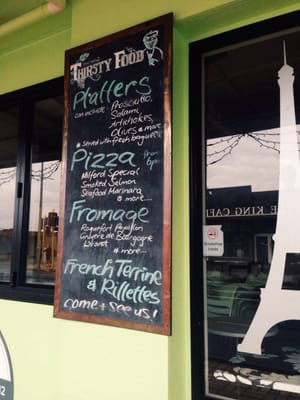 THIRSTY FOOD
Platters
can include
Prosciutto,
Salami,
Artichokes,
Olives, & more
& served with fresh baguette
Pizza from
6pm
Milford Special
Smoked Salmon
Seafood Marinara
& more....
Fromage
Roquefort Papillon
Gruyere de Bourgogne
& more...
French Terrine
& Rillettes
come + see us!
KING CAFE